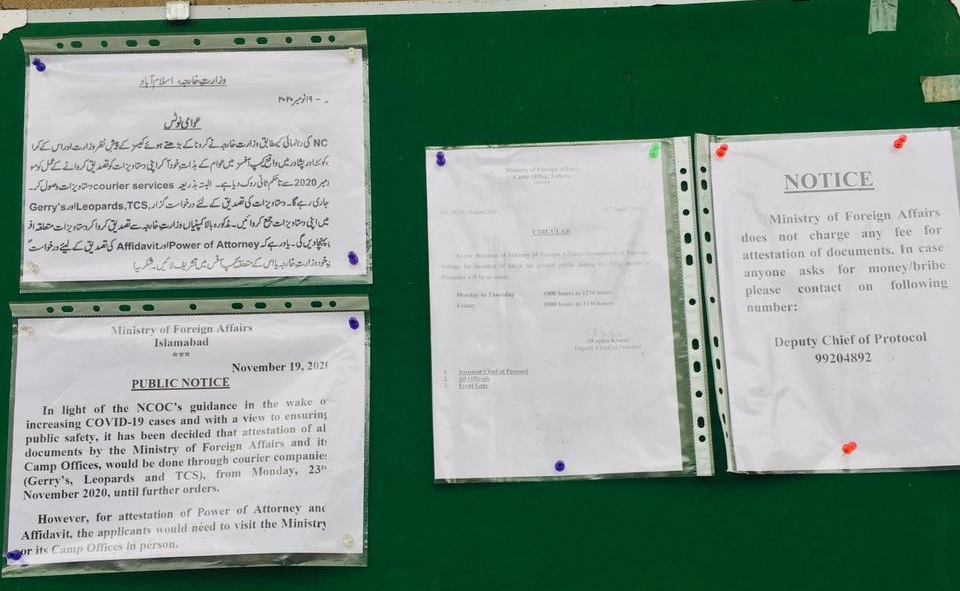 وزارتِ خارجہ، اسلام آباد
۱۹ نومبر ۲۰۲۰
عوامی نوٹس
NC کی رہنمائی کیمطابق وزارت خارجہ نے کرونا کے بڑھتے ہوئے کیسز کے پیش نظر وزارت اور اس کے
کوئٹہ اور پشاور میں واقع کیمپ آفسز میں عوام کے بذات خود آ کر اپنی دستاویزات کو تصدیق کروانے کے عمل کو
2020 سے تا حکم ثانی روک دیا ہے۔ البتہ بذریعہ courier services دستاویزات وصول
جاری رہے گا۔ دستاویزات کی تصدیق کے لئے درخواست گزار Leopards, TCS, اور Gerry's
میں اپنی دستاویزات جمع کروائیں۔ مذکورہ بالا کمپنیاں وزارت خارجہ سے تصدیق کروا کر دستاویزات متعلقہ
پہنچا دیں گی۔ یاد رہے کہ Power of Attorney اور Affidavit کی تصدیق کے لیئے درخواست
خود وزارت خارجہ یا اس کے متعلقہ کیمپ آفس میں تشریف لائیں۔ شکریہ!
Ministry of Foreign Affairs
Islamabad
***
November 19, 202
PUBLIC NOTICE
In light of the NCOC's guidance in the wake o
increasing COVID-19 cases and with a view to ensuring
public safety, it has been decided that attestation of al
documents by the Ministry of Foreign Affairs and its
Camp Offices, would be done through courier companies
(Gerry's, Leopards and TCS), from Monday, 23rd
November 2020, until further orders.
However, for attestation of Power of Attorney and
Affidavit, the applicants would need to visit the Ministry
or its Camp Offices in person.
Ministry of Foreign Affairs
Camp Office, Lahore
*****
April,
CIRCULAR
As per directive of Ministry of Foreign Affairs/Government of Pakistan
timings for issuance of token for general public during the holy month of
Ramadan will be as under
Monday to Thursday 1000 hours to 1230 hours
Friday 1000 hours to 1130 hours
Deputy Chief of Protocol
1. Assistant Chief of Protocol
2. All Officials
3. Front Gate
NOTICE
Ministry of Foreign Affairs
does not charge any fee for
attestation of documents. In case
anyone asks for money/bribe
please contact on following
number:
Deputy Chief of Protocol
99204892